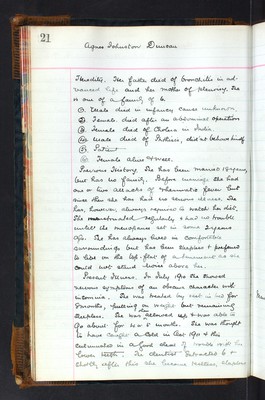 21
Agnes Johnston Duncan
Heredity. Her father died of bronchitis in ad-
vanced life and her mother of pleurisy. She
is one of a family of 6
① Male died in infancy cause unknown.
② Female died after an abdominal operation
③ Female died of Cholera in India.
④ Male died of Phthisis, did not behave kindly
⑤ Patient
⑥ Female alive & well.
Previous History. She has been married years,
but has no family. Before marriage she had
one or two attacks of rheumatic fever but
since then she has had no serious illness. She
has, however, always required to watch her diet.
She menstruated regularly & had no trouble
until the menopause set in some 2 years
ago. She has always lived in comfortable
surroundings but has been sleepless & preferred
to live on the top flat of a tenement as she
could not stand noise above her.
Present Illness. In July 190 she showed
nervous symptoms of an obscure character with
insomnia. She was treated by rest in bed for
months, putting on weight but remaining
sleepless. She was then allowed up & was able to
go about for 4 or 5 months. She was thought
to have caught a cold in Sept 190 & this
culminated in a good deal of trouble with her
lower teeth. The dentist extracted 6 &
shortly after this she became restless, sleepless